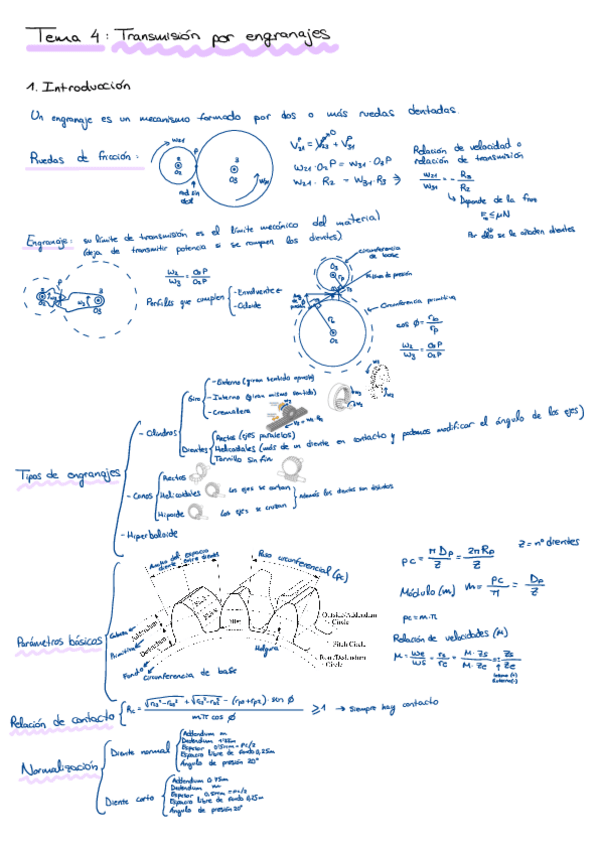 Tema 4: Transmisión por engranajes
1. Introducción
Un engranaje es un mecanismo formado por dos o más ruedas dentadas.
Ruedas de fricción:
ω21 · O2P = ω31 · O3P
ω21 · R2 = ω31 · R3 ⇒
Relación de velocidad o
relación de transmisión
ω21/ω31 = - R3/R2
↳ Depende de la fza
F ≤ μN
Por ello se le añaden dientes
Engranaje: su límite de transmisión es el límite mecánico del material
(deja de transmitir potencia si se rompen los dientes)
ω2/ω3 = O3P/O2P
Perfiles que cumplen
- Envolvente
- Cicloide
circunferencia de base
Circunferencia primitiva
cos ϕ = rb/rp
ω2/ω3 = O3P/O2P
Tipos de engranajes
- Cilindros
Giro
- Externo (giran sentido opuesto)
- Interno (giran mismo sentido)
- Cremallera
Dientes
Rectos (ejes paralelos)
Helicoidales (más de un diente en contacto y podemos modificar el ángulo de los ejes)
Tornillo sin fin
- Conos
Rectos
Helicoidales
Los ejes se cortan
Hipoide
Los ejes se cruzan
Además los dientes son distintos
- Hiperboloide
Parámetros básicos
Ancho del diente
espacio entre dientes
Paso circunferencial (pc)
Cabeza
Primitiva
Fondo
Addendum
Dedendum
Outside/Addendum Circle
Pitch Circle
Root/Dedendum Circle
Holgura
circunferencia de base
pc = πDp/Z = 2πRp/Z
Z = nº dientes
Módulo (m) m = pc/π = Dp/Z
pc = m·π
Relación de velocidades (μ)
Relación de contacto
≥ 1 → Siempre hay contacto
Normalización
Diente normal
Addendum m
Dedendum 1'25m
Espesor 0'5πm = pc/2
Espacio libre de fondo 0,25m
Ángulo de presión 20°
Diente corto
Addendum 0.75m
Dedendum m
Espesor 0,5πm = pc/2
Espacio libre de fondo 0,25m
Ángulo de presión 20°